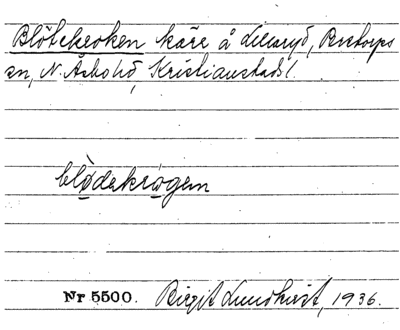 Blötekroken kärr å Lillaryd, Perstorps
sn, N. Åsbohd, Kristianstads l.
blödekrogen
Nr 5500. Birgit Lundkvist, 1936.